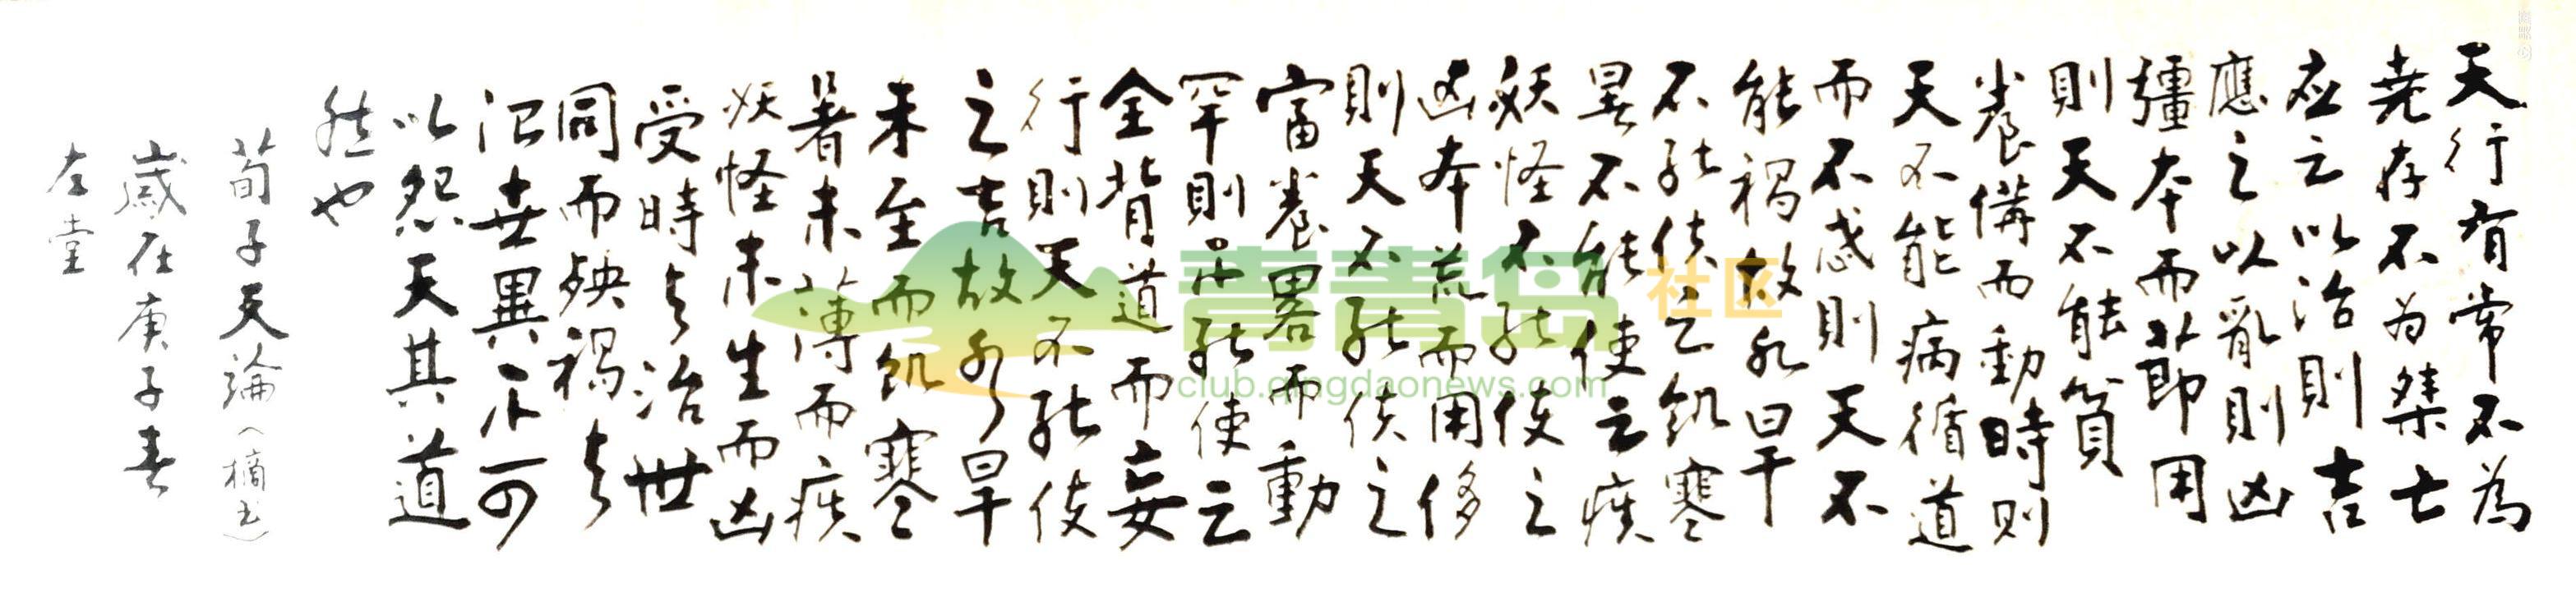 天行有常不為
尧存不为桀亡
应之以治則吉
應之以亂則凶
彊本而節用
則天不能貧
养備而動時则
天不能病循道
而不忒則天不
能禍故水旱
不能使之飢寒
暑不能使之疾
妖怪不能使之
凶本荒而用侈
則天不能使之
富养畧而動
罕則不能使之
全背道而妄
行則天不能使
之吉故水旱
未至而飢寒
暑未薄而疾
妖怪未生而凶
受時与治世
同而殃禍与
治世異不可
以怨天其道
然也
荀子天論（摘书）
歲在庚子春
左堂
青青岛社区
club.qingdaonews.com